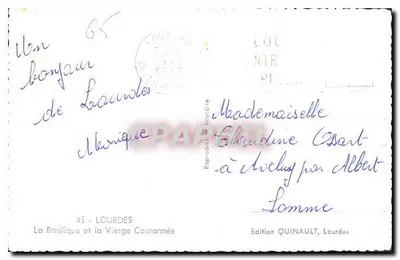 65
Un
bonjour
de Lourdes
Monique
LOU
Reproduction interdite
Mademoiselle
Claudine Ossart
à Aveluy par Albert
Somme
45 - LOURDES
La Basilique et la Vierge Couronnée
Edition QUINAULT, Lourdes